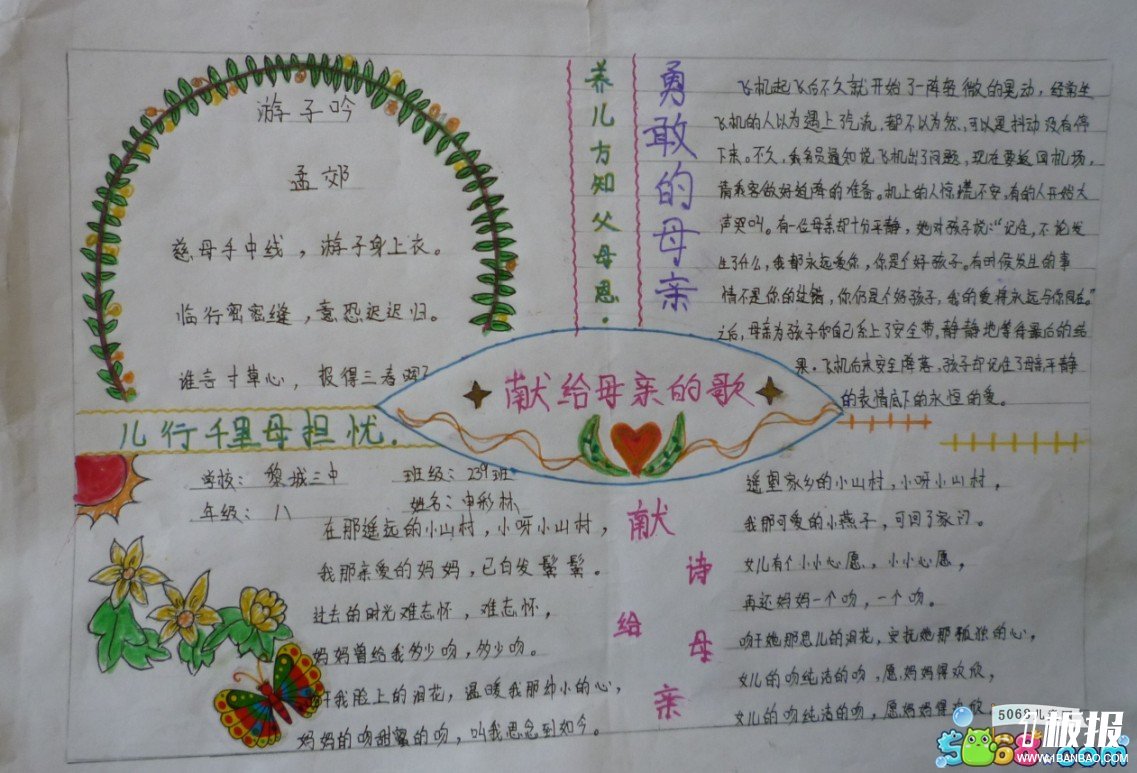 游子吟
孟郊
慈母手中线，游子身上衣。
临行密密缝，意恐迟迟归。
谁言寸草心，报得三春晖？
儿行千里母担忧.
养儿方知父母恩.
勇敢的母亲
飞机起飞后不久就开始了一阵轻微的晃动，经常坐
飞机的人以为遇上了气流，都不以为然，可以是抖动没有停
下来。不久，乘务员通知说飞机出了问题，现在要返回机场，
请乘客做好迫降的准备。机上的人惊慌不安，有的人开始大
声哭叫。有一位母亲却十分平静，她对孩子说："记住，不论发
生了什么，我都永远爱你，你是个好孩子。有时候发生的事
情不是你的过错，你仍是个好孩子，我的爱将永远与你同在。"
之后，母亲为孩子和自己系上了安全带，静静地等待最后的结
果。飞机后来安全降落，孩子却记住了母亲平静
的表情底下的永恒的爱。
献给母亲的歌
学校：黎城三中 班级：239班
年级：八 姓名：申彩林
在那遥远的小山村，小呀小山村，
我那亲爱的妈妈，已白发鬓鬓。
过去的时光难忘怀，难忘怀，
妈妈曾给我多少吻，多少吻。
吻干我脸上的泪花，温暖我那幼小的心，
妈妈的吻甜蜜的吻，叫我思念到如今。
献诗给母亲
遥望家乡的小山村，小呀小山村，
我那可爱的小燕子，可回了家门。
女儿有个小小心愿，小小心愿，
再还妈妈一个吻，一个吻。
吻干她那思儿的泪花，安抚她那孤独的心，
女儿的吻纯洁的吻，愿妈妈得欢欣，
女儿的吻纯洁的吻，愿妈妈得欢欣
5068儿
板报
WWW.1BANBAO.COM
5068.com